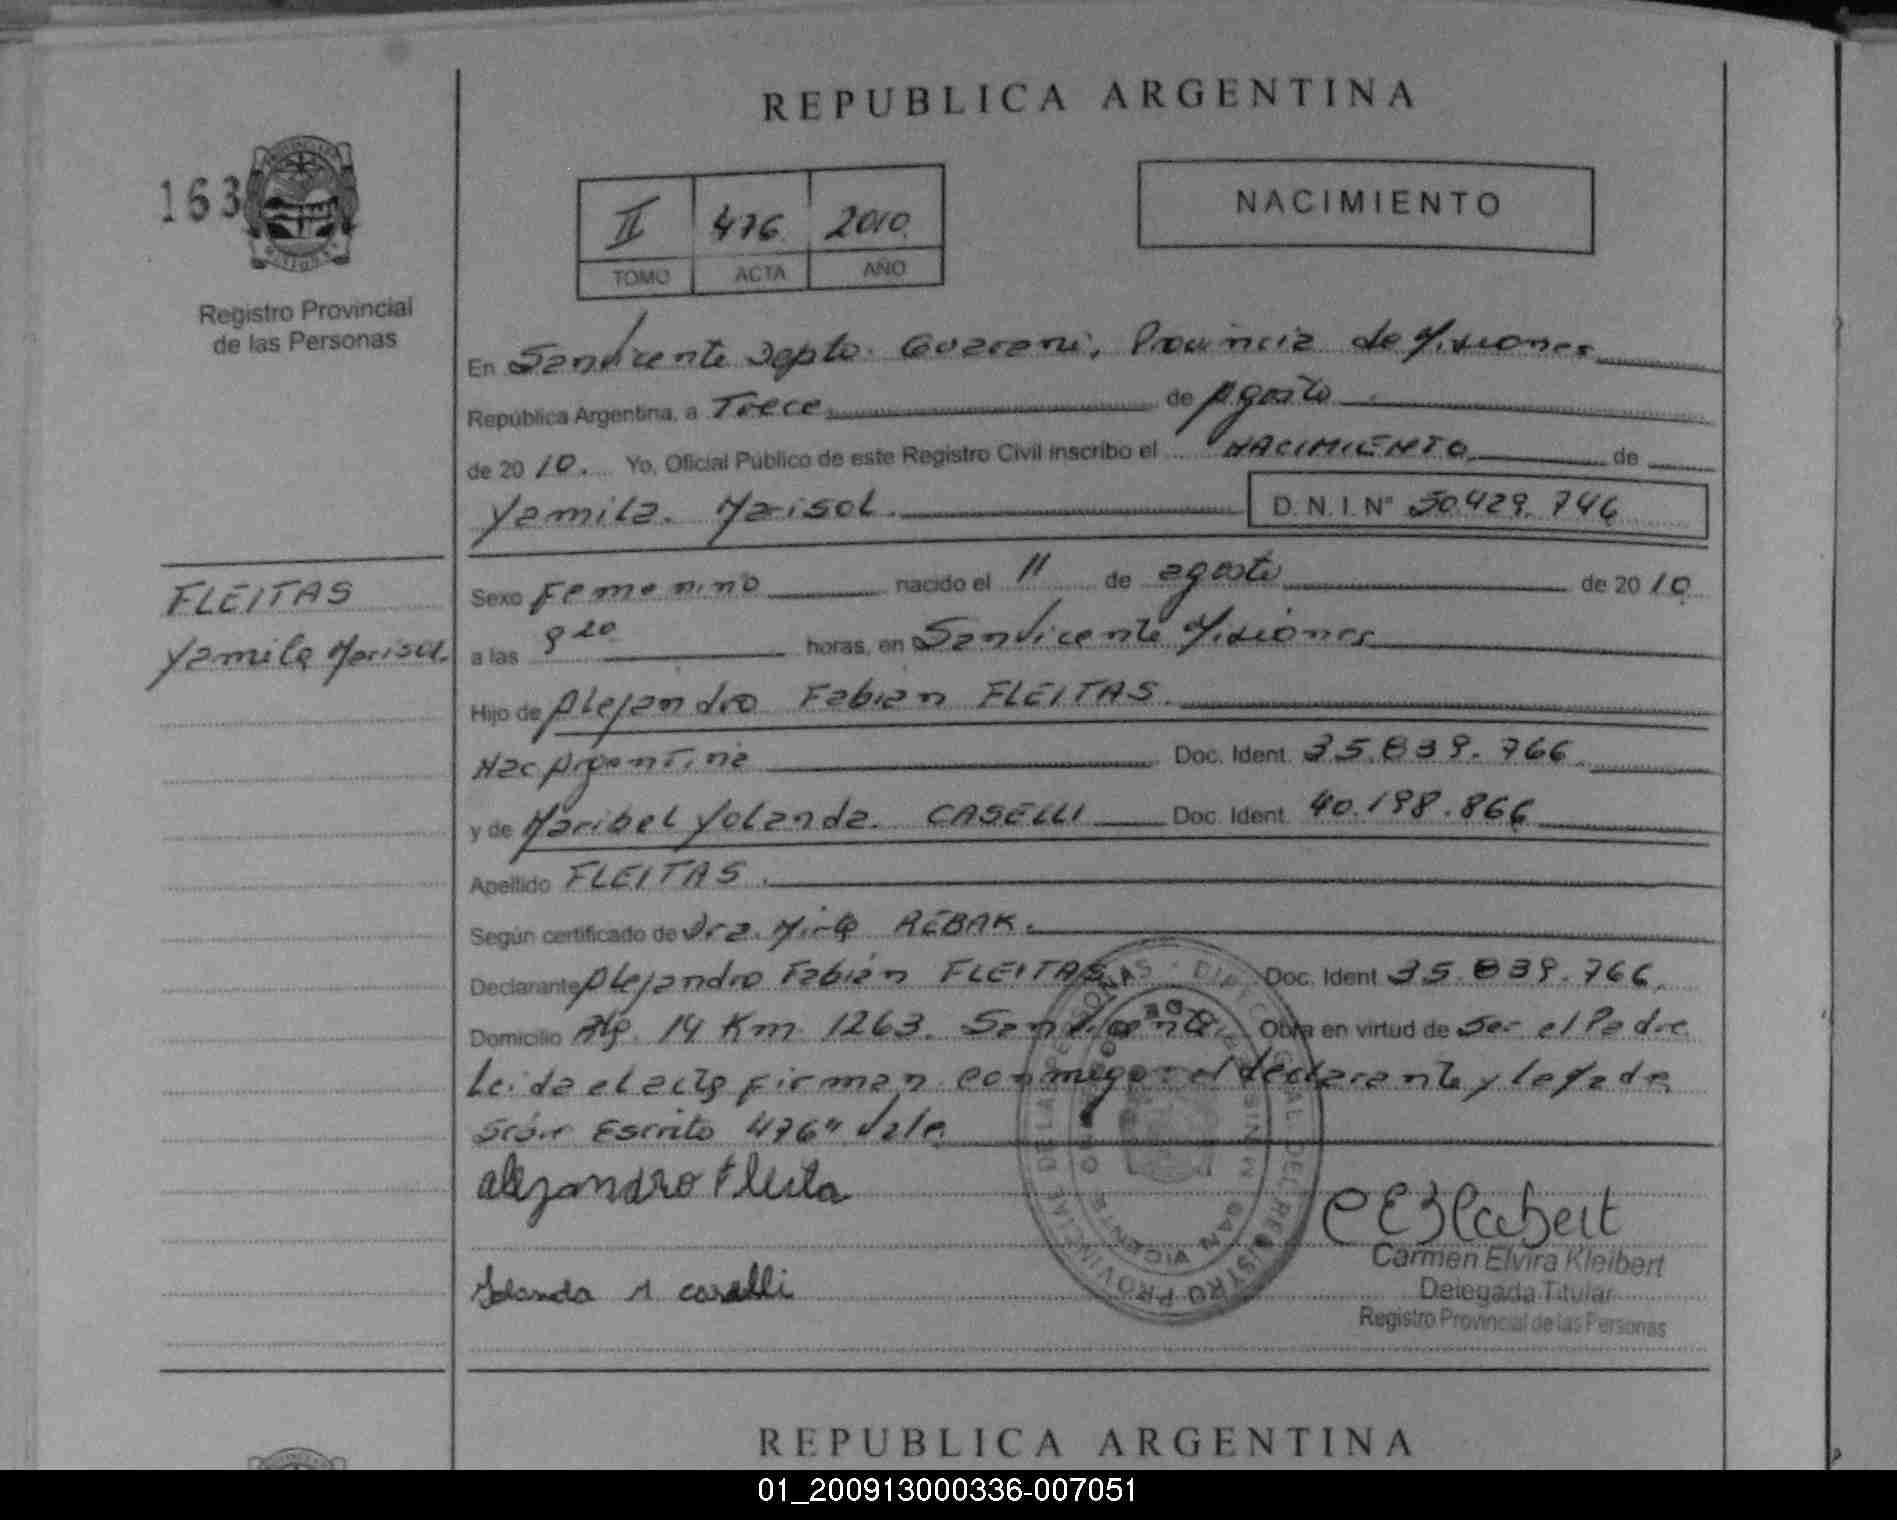 REPUBLICA ARGENTINA
163
II 476 2010
TOMO ACTA AÑO
NACIMIENTO
Registro Provincial
de las Personas
En San Vicente Depto. Guarani, Provincia de Misiones
República Argentina, a Trece de Agosto
de 2010. Yo, Oficial Público de este Registro Civil inscribo el NACIMIENTO de
Yamila. Marisol. D.N.I.Nº 50.429.746
FLEITAS
Yamila Marisol.
Sexo Femenino nacido el 11 de agosto de 2010
a las 8 20 horas, en San Vicente Misiones
Hijo de Alejandro Fabian FLEITAS.
Nac Argentina Doc. Ident. 35.839.766
y de Maribel Yolanda. CASELLI Doc. Ident. 40.198.866
Apellido FLEITAS.
Según certificado de Dra. REBAK.
Declarante Alejandro Fabián FLEITAS Doc. Ident 35.839.766.
Domicilio 14 Km 1263. San Vicente Obra en virtud de Ser el Padre
Leida el acta firman conmigo: el declarante y la Madre
Escrito 476" Vale
alejandro fleita
Yolanda M caselli
Carmen Elvira Kleibert
Delegada Titular
Registro Provincial de las Personas
DIRECCION PROVINCIAL DEL REGISTRO PROVINCIAL DE LAS PERSONAS
SAN VICENTE
REPUBLICA ARGENTINA
01_200913000336-007051